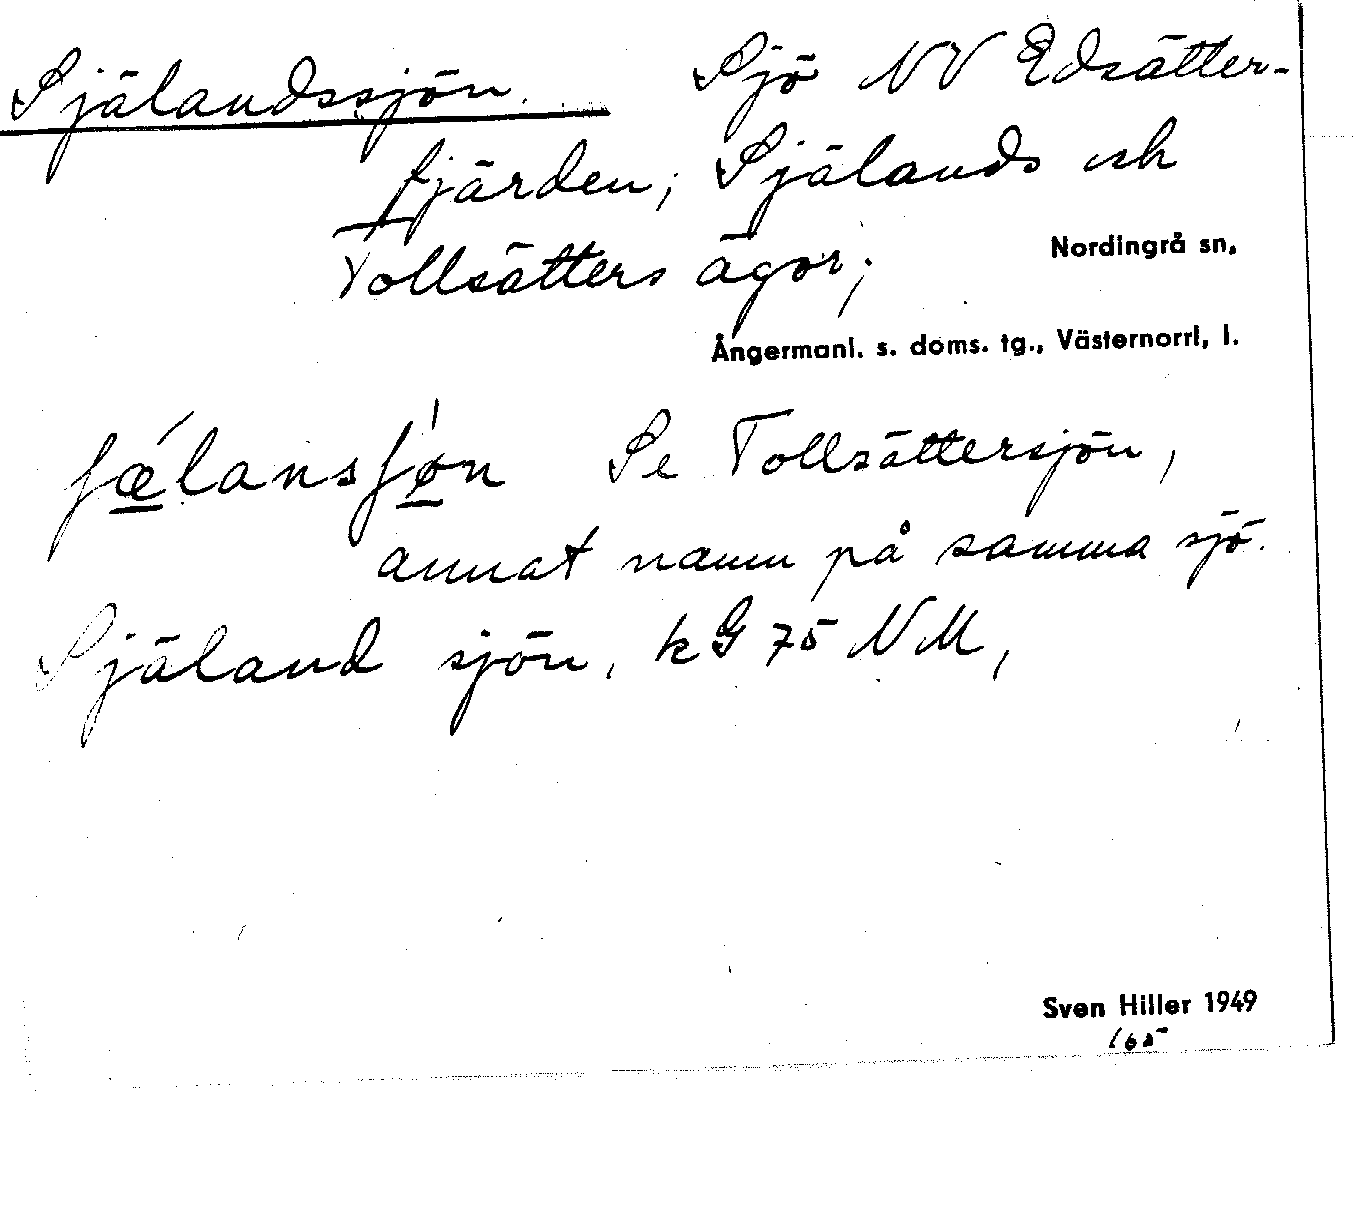 Själandssjön. Sjö NV Edsätter-
fjärden; Själands och
Tollsätters ägor;
Nordingrå sn,
Ångermanl. s. doms. tg., Västernorrl, l.
ʃǽlansʃø̍n Se Tollsättersjön,
annat namn på samma sjö.
Själand sjön, kG 75 NM,
Sven Hiller 1949
165